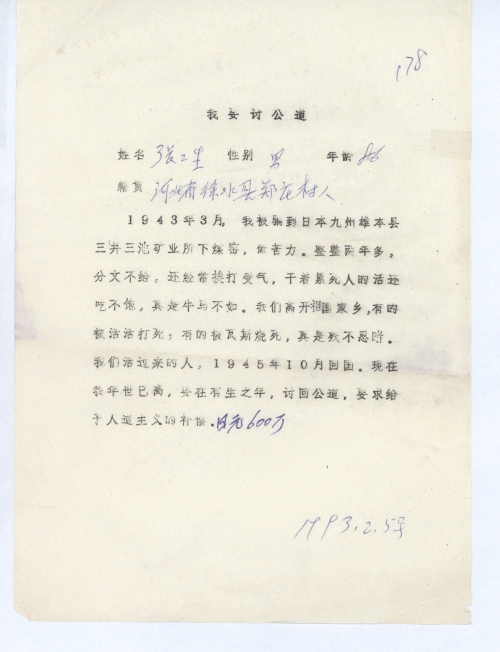 178
我要讨公道
姓名 张二生 性别 男 年龄 86
籍贯 河北省徐水县郑庄村人
1943年3月，我被骗到日本九州雄本县
三井三池矿业所下煤窑，做苦力。整整两年多，
分文不给，还经常挨打受气，干着累死人的活还
吃不饱，真是牛马不如。我们离开祖国家乡，有的
被活活打死；有的被瓦斯烧死，真是残不忍睹。
我们活过来的人，1945年10月回国。现在
我年世已高，要在有生之年，讨回公道，要求给
予人道主义的补偿。日元600万
1993.2.5号